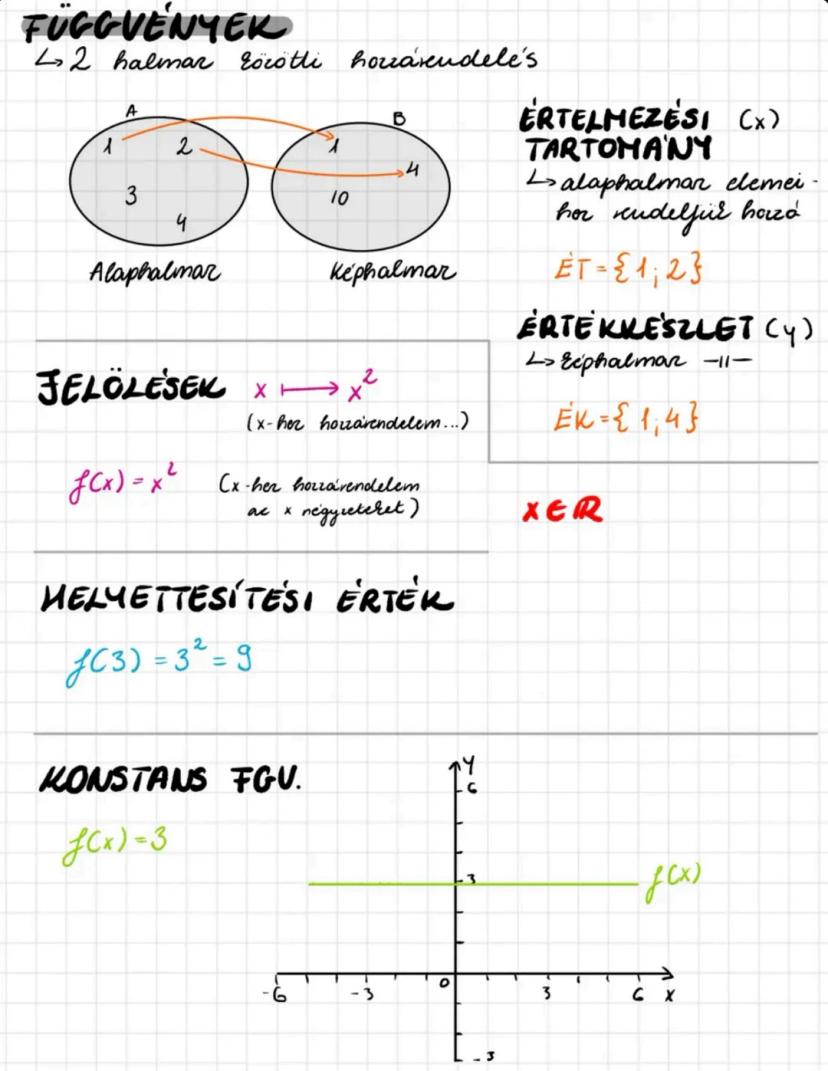 FÜGGVÉNYEK
↳ 2 halmaz közötti hozzárendelés
A
B
1 2
3
4
1
4
10
Alaphalmaz
Képhalmaz
ÉRTELMEZÉSI (x)
TARTOMÁNY
↳ alaphalmaz elemei-
hez rendeljük hozzá
ÉT = {1; 2}
ÉRTÉKKÉSZLET (y)
↳ képhalmaz —||—
ÉK = {1, 4}
JELÖLÉSEK x ⟼ x²
(x-hez hozzárendelem...)
f(x) = x² (x-hez hozzárendelem
az x négyzeteket)
x ∈ ℝ
HELYETTESÍTÉSI ÉRTÉK
f(3) = 3² = 9
KONSTANS FGV.
f(x) = 3
y
6
3
f(x)
-6 -3 0 3 6 x
-3